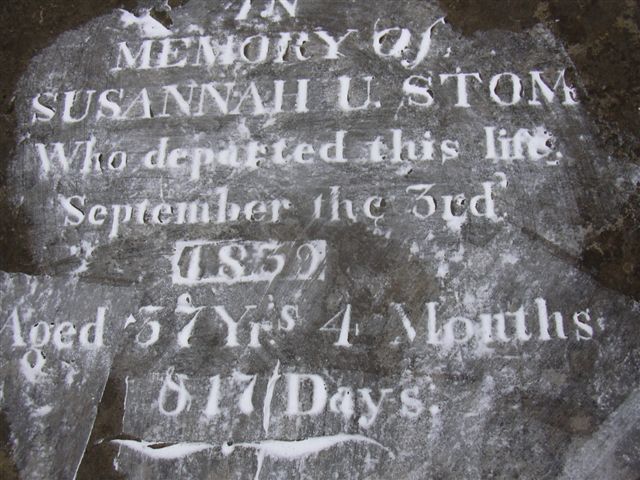 IN
MEMORY Of
SUSANNAH U. STOM
Who departed this life
September the 3rd
1839
Aged 37 Yr's 4 Months
& 17 Days.